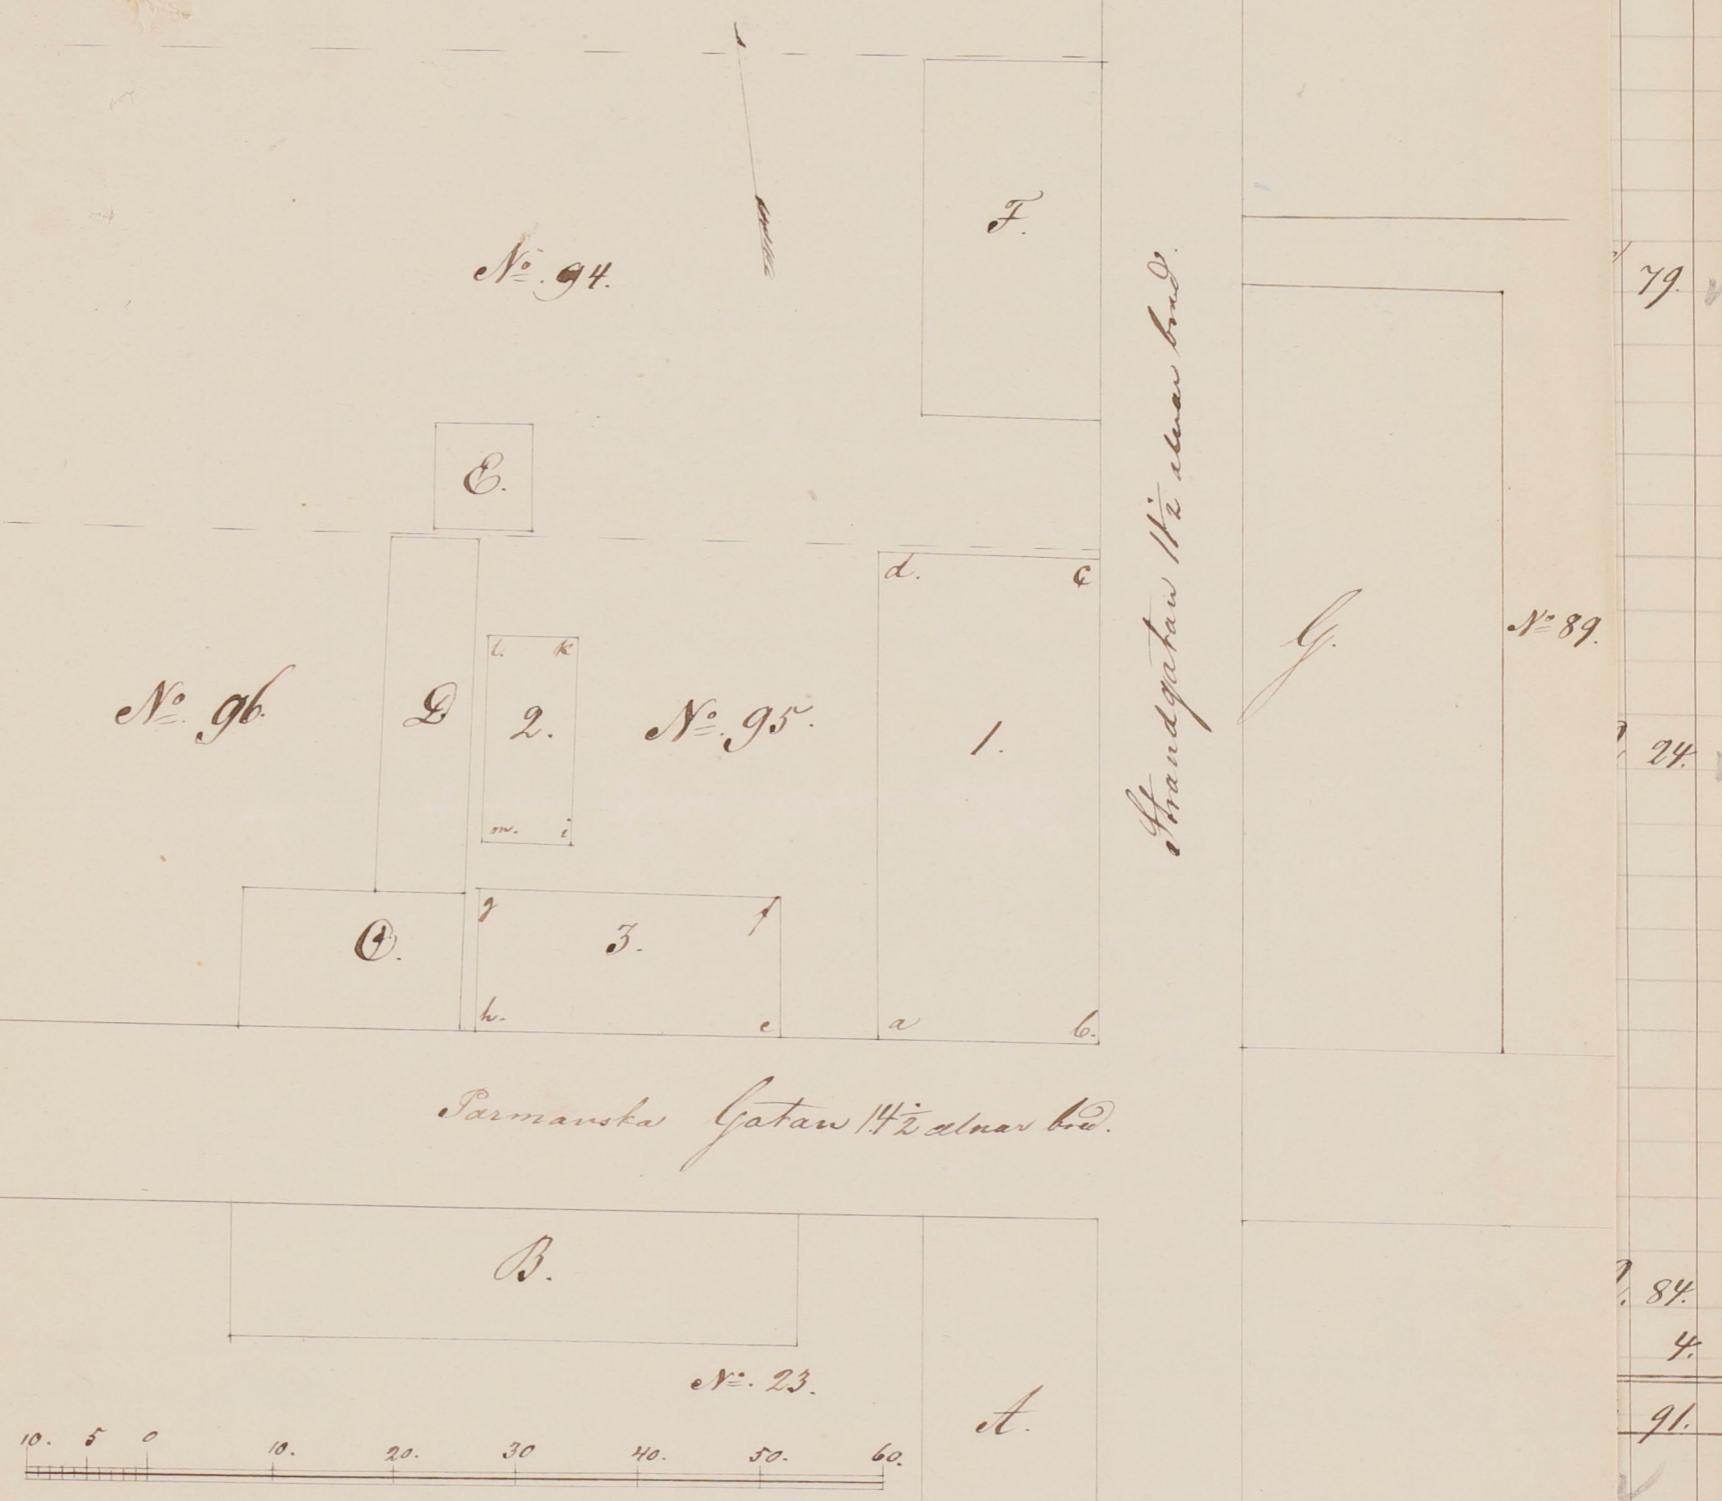 F.
No. 94.
79.
E.
Strandgatan 11 1/2 alnar bred.
d. c
G.
No 89.
l. k
No. 96.
D
2.
No. 95.
1.
24.
m. i
g f
C.
3.
h. e
a b.
Parmanska Gatan 14 1/2 alnar bred.
B.
84.
4.
No. 23.
A.
91.
10. 5 0 10. 20. 30 40. 50. 60.